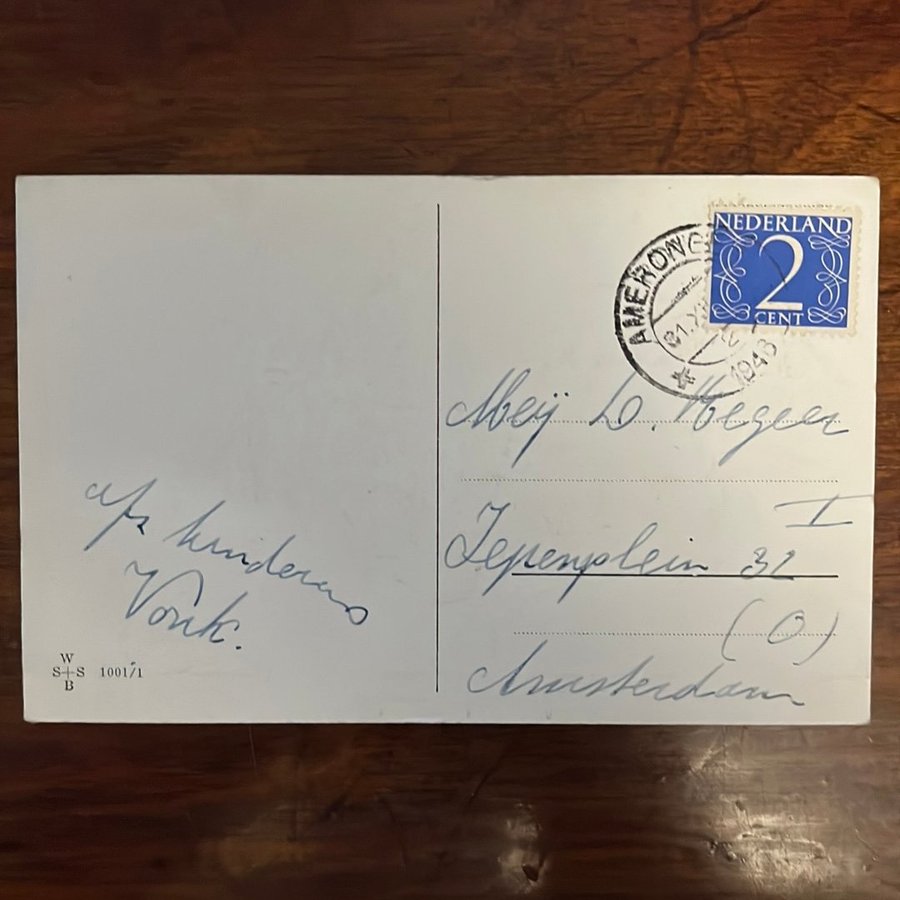 NEDERLAND
2
CENT
AMERONGE
31.XII
1946
Meij D. Meger
I
Iepenplein 31
(O)
Amsterdam
afz kinderen
Vonk.
W
S+S 1001/1
B